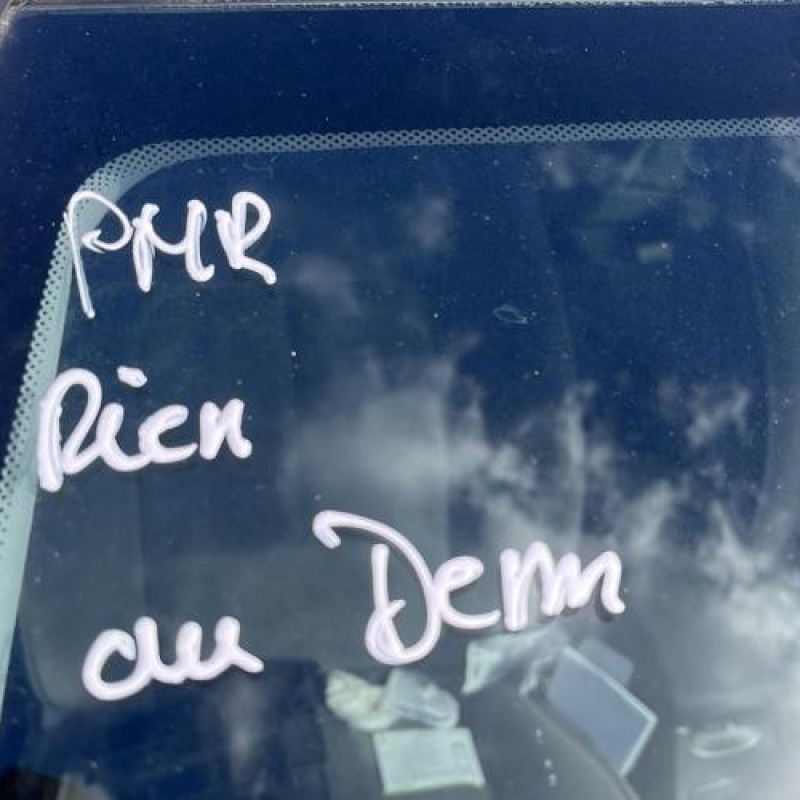 PMR
Rien
au Dem